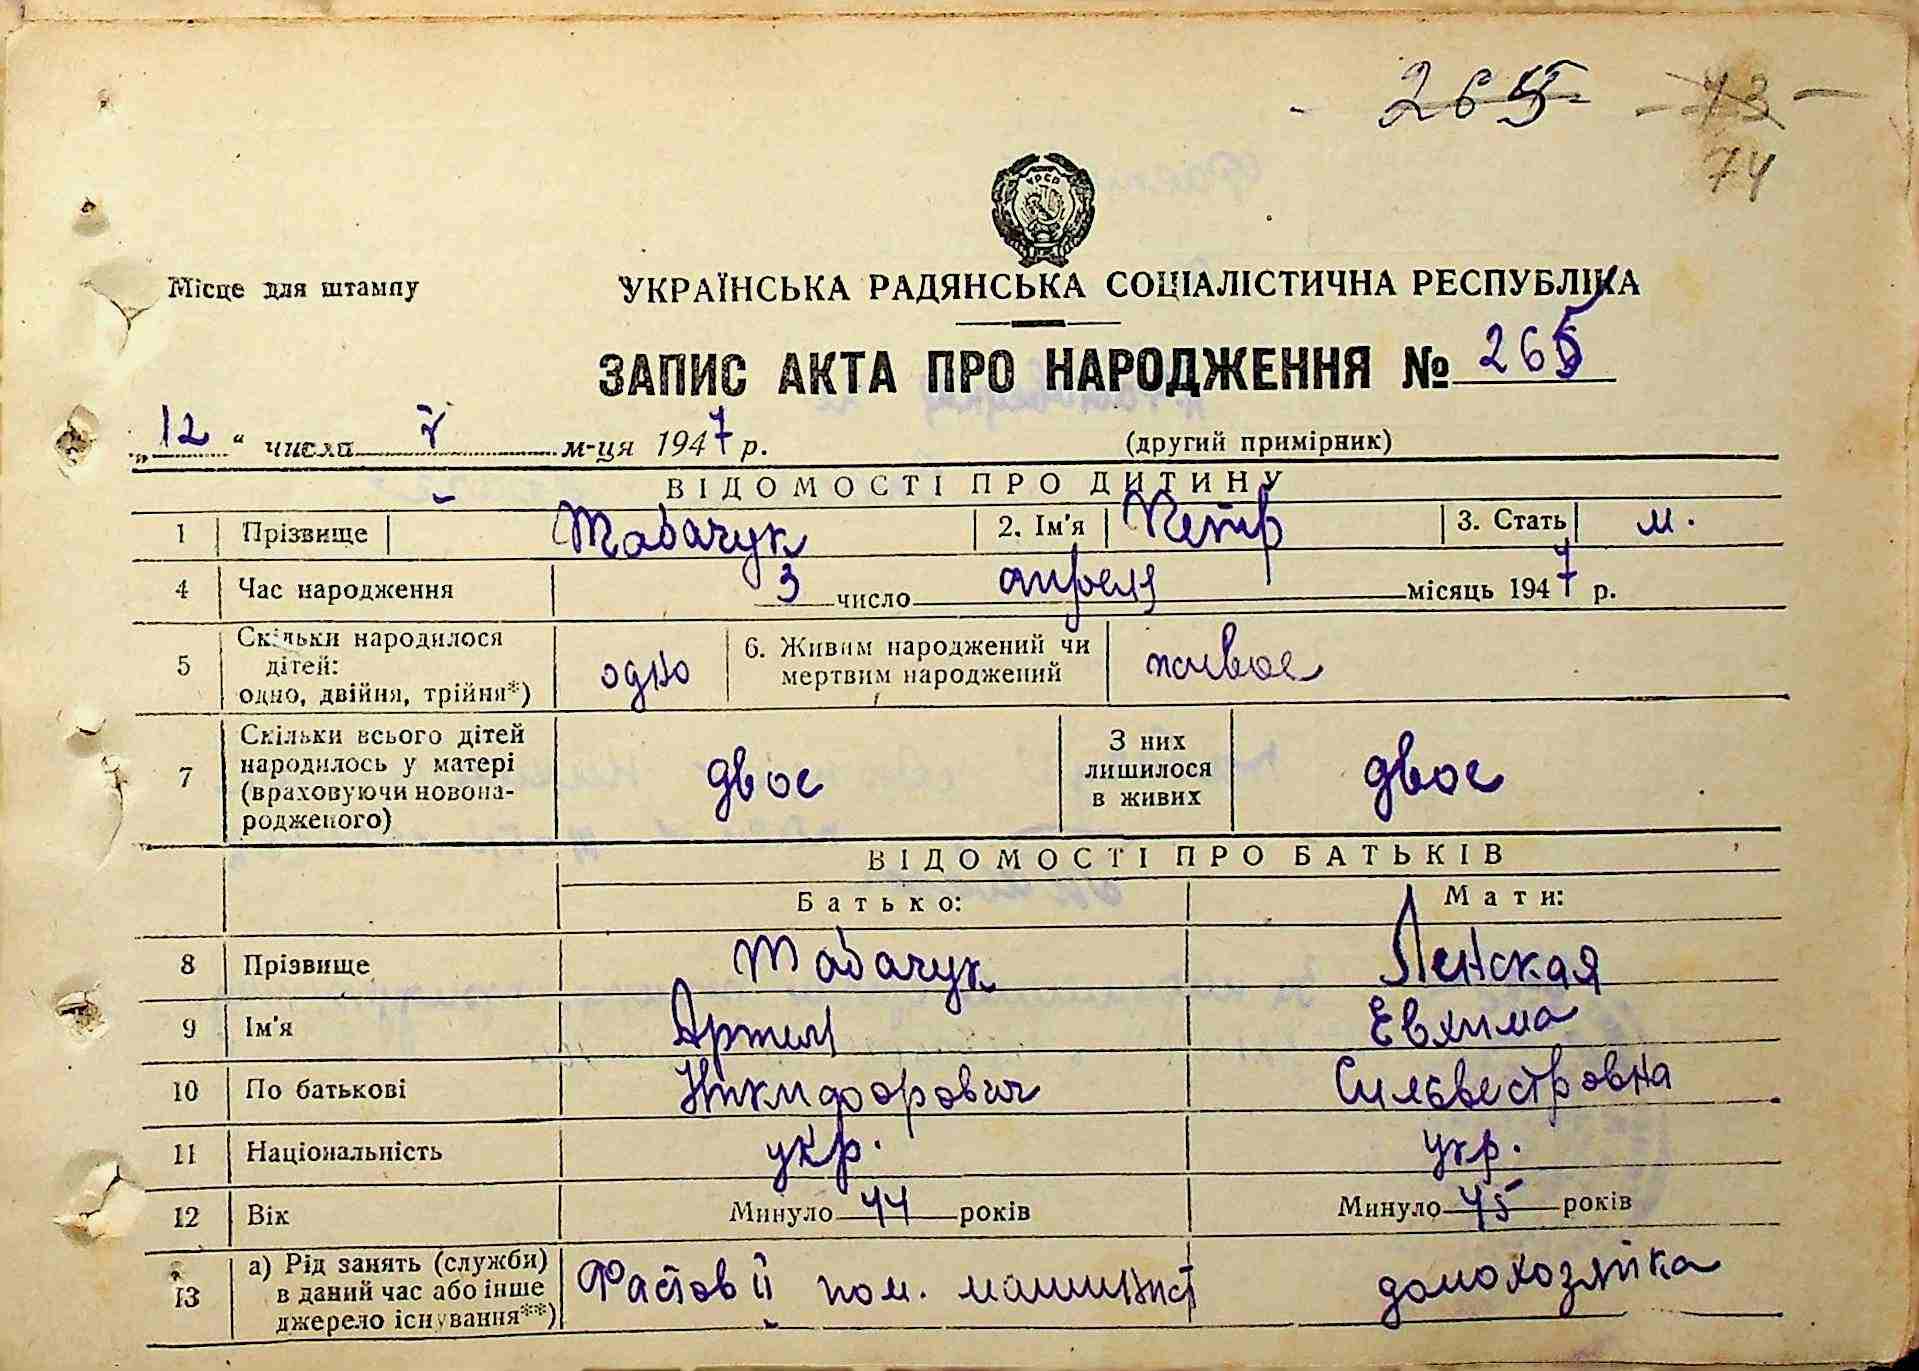 - 265 - - 73 -
74
УРСР
Місце для штампу
УКРАЇНСЬКА РАДЯНСЬКА СОЦІАЛІСТИЧНА РЕСПУБЛІКА
ЗАПИС АКТА ПРО НАРОДЖЕННЯ № 265
„12“ числа V м-ця 1947 р. (другий примірник)
ВІДОМОСТІ ПРО ДИТИНУ
1 Прізвище Табачук 2. Ім'я Петр 3. Стать м.
4 Час народження 3 число апреля місяць 1947 р.
5 Скільки народилося дітей: одно, двійня, трійня*) одно 6. Живим народжений чи мертвим народжений живое
7 Скільки всього дітей народилось у матері (враховуючи новонародженого) двое З них лишилося в живих двое
ВІДОМОСТІ ПРО БАТЬКІВ
Батько: Мати:
8 Прізвище Табачук Ленская
9 Ім'я Артем Евхима
10 По батькові Никифорович Сильвестровна
11 Національність укр. укр.
12 Вік Минуло 44 років Минуло 45 років
13 а) Рід занять (служби) в даний час або інше джерело існування**) Фастов II пом. машинист домохозяйка